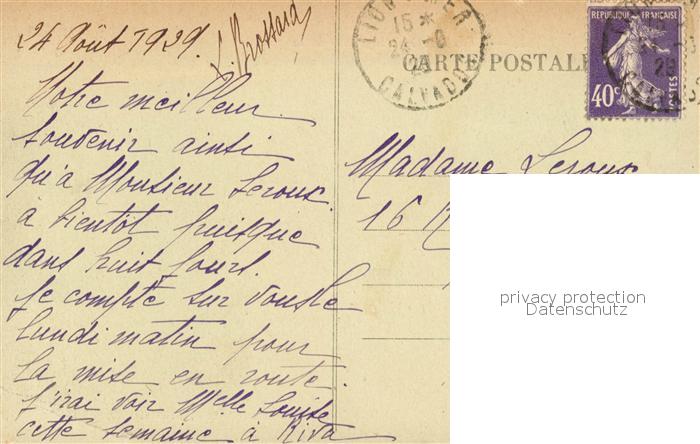 24 Août 1929.
L. Brossard
Notre meilleur
souvenir ainsi
qu'à Monsieur Leroux.
à bientôt puisque
dans huit jours.
je compte sur vous le
lundi matin pour
la mise en route.
j'irai voir Melle Louise
cette semaine à Riva
LION-S-MER
15 *
24 -8
29
CALVADOS
CARTE POSTALE
REPUBLIQUE FRANÇAISE
40c
POSTES
29
Madame Leroux
16
privacy protection
Datenschutz